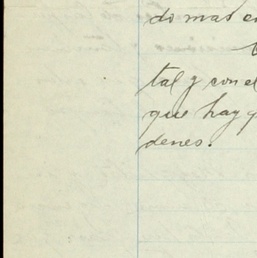 do mas en
tal y con el
que hay q
denes.